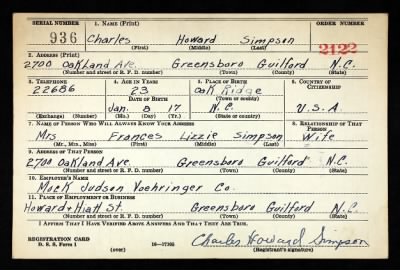 SERIAL NUMBER 1. NAME (Print) ORDER NUMBER
936 Charles Howard Simpson 2122
(First) (Middle) (Last)
2. ADDRESS (Print)
2700 Oakland Ave. Greensboro Guilford N.C.
(Number and street or R. F. D. number) (Town) (County) (State)
3. TELEPHONE 4. AGE IN YEARS 5. PLACE OF BIRTH 6. COUNTRY OF CITIZENSHIP
22686 23 Oak Ridge
DATE OF BIRTH (Town or county)
Jan. 8 17 N.C. U.S.A.
(Exchange) (Number) (Mo.) (Day) (Yr.) (State or country)
7. NAME OF PERSON WHO WILL ALWAYS KNOW YOUR ADDRESS 8. RELATIONSHIP OF THAT PERSON
Mrs Frances Lizzie Simpson Wife
(Mr., Mrs., Miss) (First) (Middle) (Last)
9. ADDRESS OF THAT PERSON
2700 Oakland Ave. Greensboro Guilford N.C.
(Number and street or R. F. D. number) (Town) (County) (State)
10. EMPLOYER'S NAME
Mock Judson Voehringer Co.
11. PLACE OF EMPLOYMENT OR BUSINESS
Howard + Hiatt St. Greensboro Guilford N.C.
(Number and street or R. F. D. number) (Town) (County) (State)
I AFFIRM THAT I HAVE VERIFIED ABOVE ANSWERS AND THAT THEY ARE TRUE.
REGISTRATION CARD
D. S. S. Form 1 (over) 16—17105 Charles Howard Simpson
(Registrant's signature)